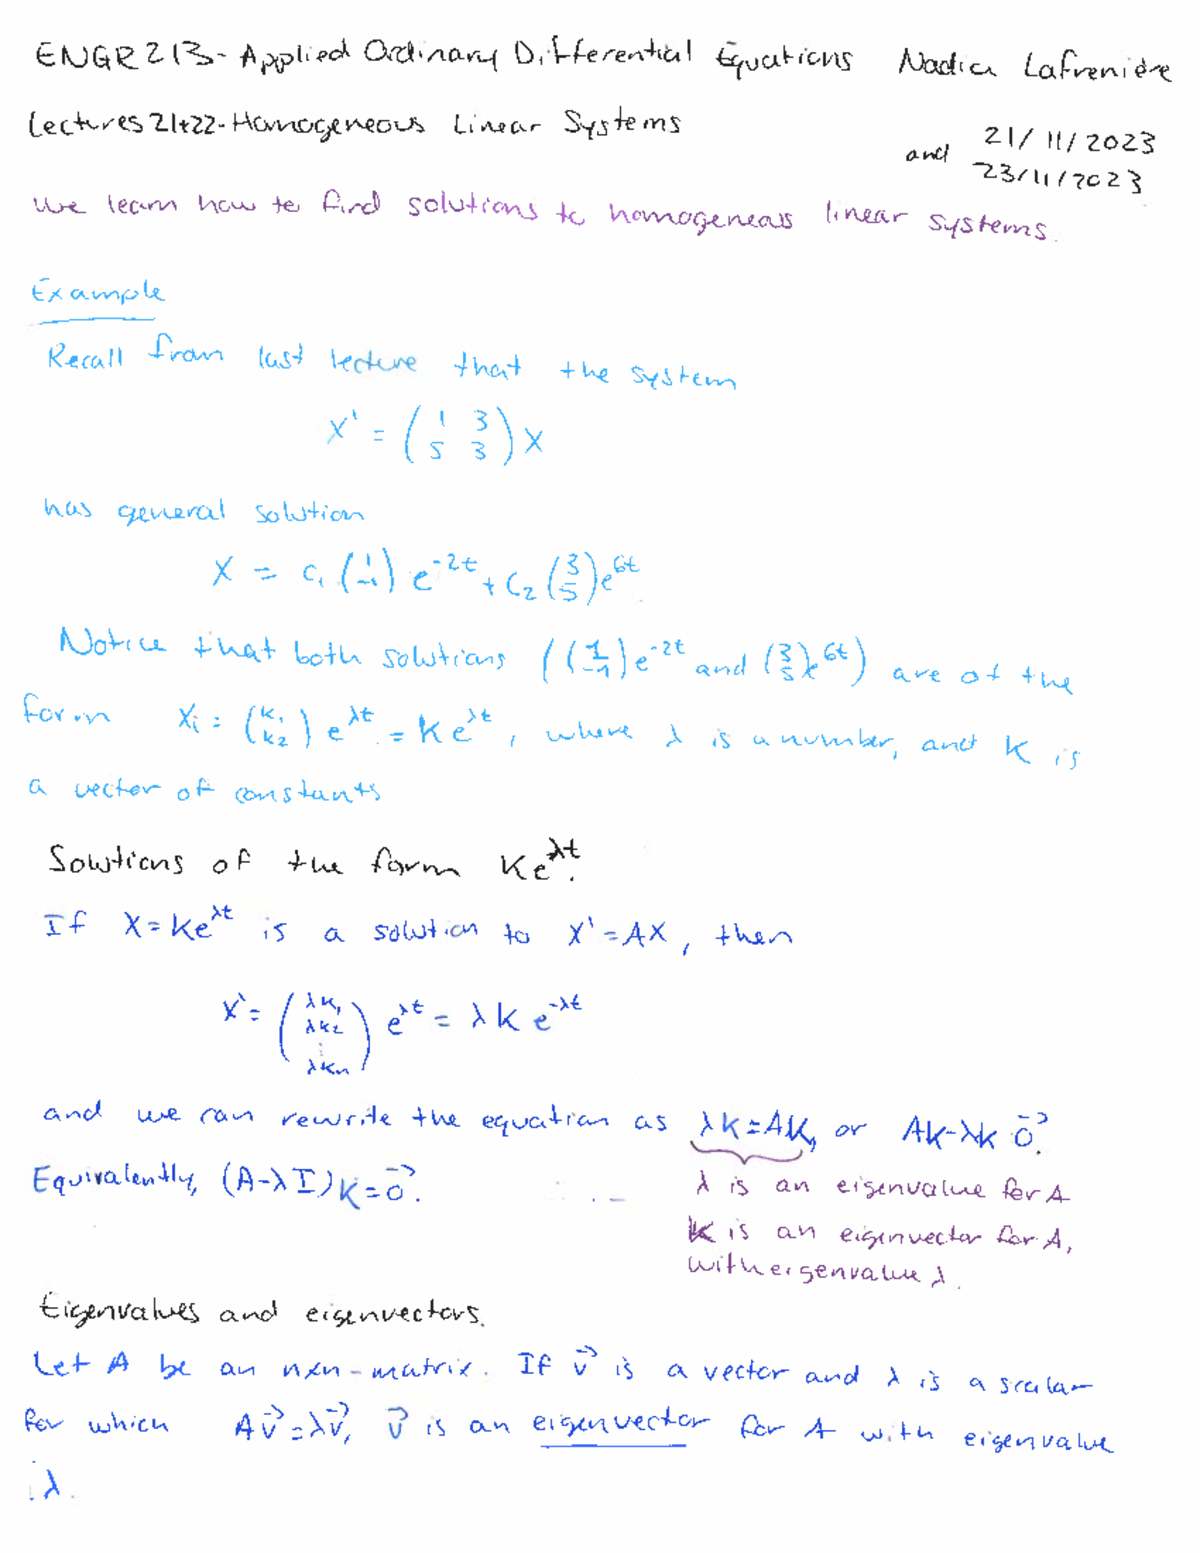 ENGR213-Applied Ordinary Differential Equations Nadia Lafrenière
Lectures 21+22-Homogeneous Linear Systems
21/11/2023
and 23/11/2023
We learn how to find solutions to homogeneous linear systems.
Example
Recall from last lecture that the system
X' = (1 3; 5 3) X
has general solution
X = c₁ (1; -1) e^{-2t} + c₂ (3; 5) e^{6t}
Notice that both solutions ((1; -1) e^{-2t} and (3; 5) e^{6t}) are of the
form X_i = (k₁; k₂) e^{λt} = K e^{λt}, where λ is a number, and K is
a vector of constants
Solutions of the form Ke^{λt}.
If X=Ke^{λt} is a solution to X'=AX, then
X' = (λk₁; λk₂; ⋮; λkₙ) e^{λt} = λK e^{-λt}
and we can rewrite the equation as λK=AK, or AK-λK 0⃗.
Equivalently, (A-λI)K=0⃗.
λ is an eigenvalue for A
K is an eigenvector for A,
with eigenvalue λ.
Eigenvalues and eigenvectors.
Let A be an nxn-matrix. If v⃗ is a vector and λ is a scalar
for which Av⃗=λv⃗, v⃗ is an eigenvector for A with eigenvalue
λ.